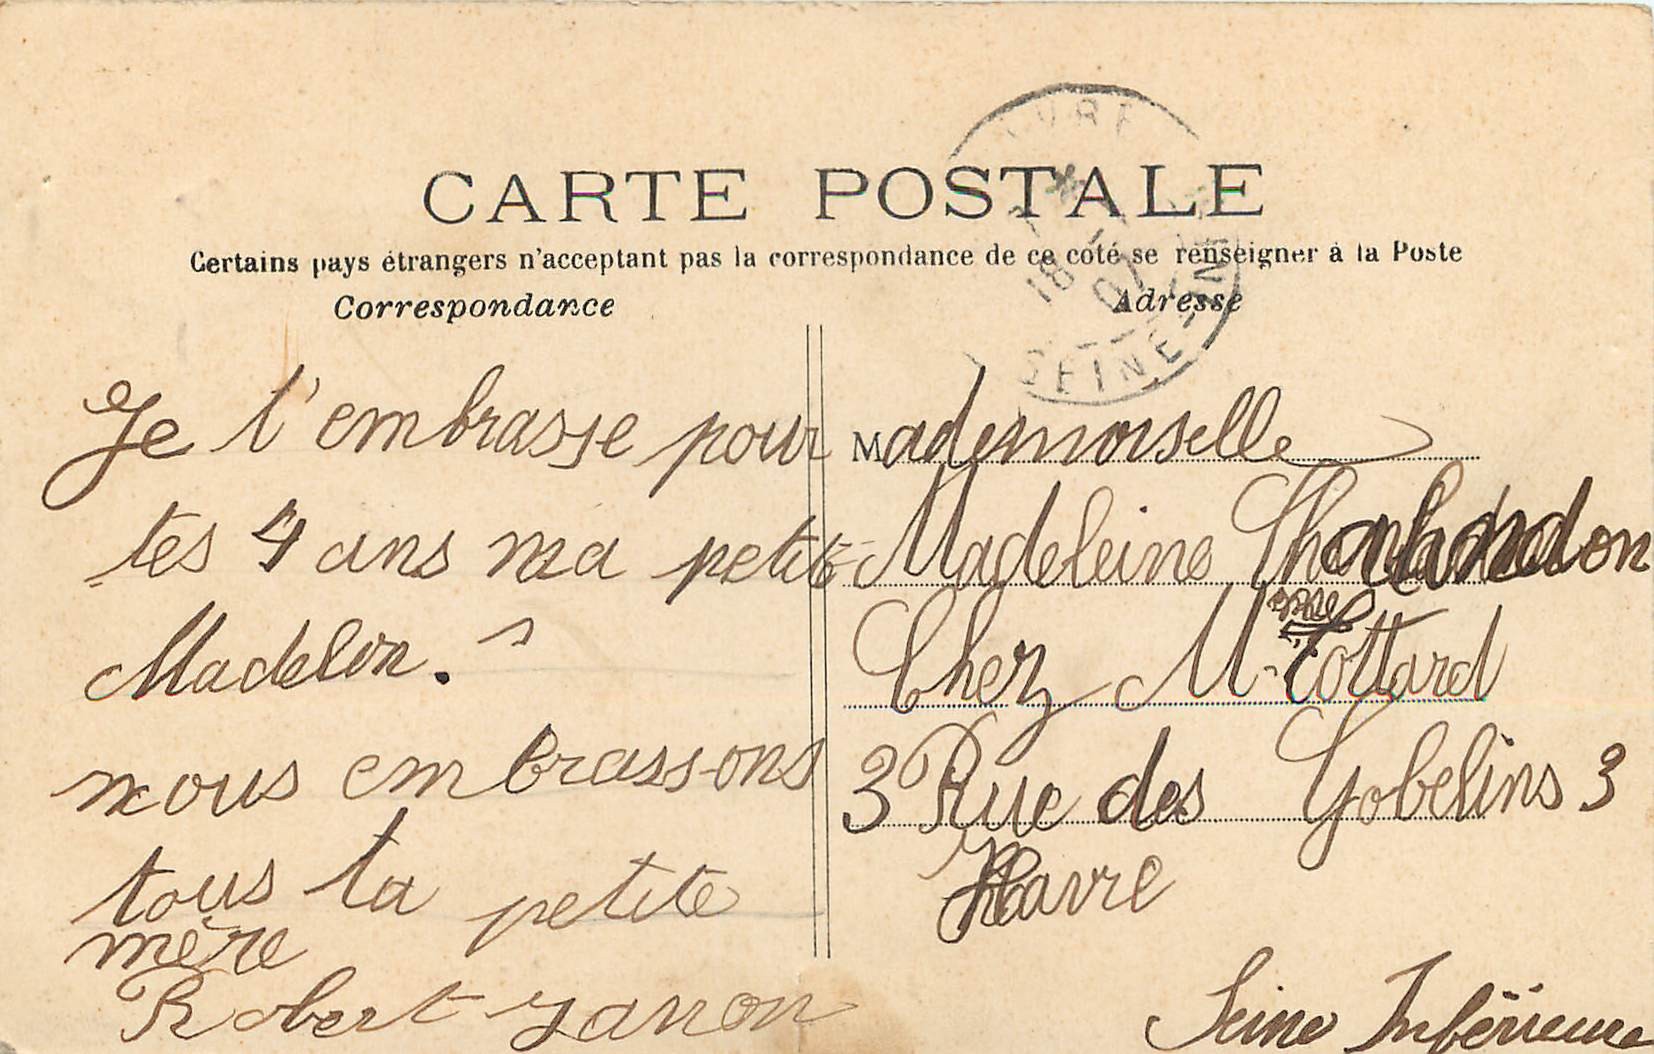 CARTE POSTALE
Certains pays étrangers n'acceptant pas la correspondance de ce coté se renseigner à la Poste
Correspondance
Je t'embrasse pour
tes 4 ans ma petite
Madelon.
nous embrassons
tous ta petite
mère
Robert
Adresse
Mademoiselle
Madeleine
Chez Mme Cottard
3 Rue des Gobelins 3
Havre
Seine Inférieure
18
07
SEINE-IN